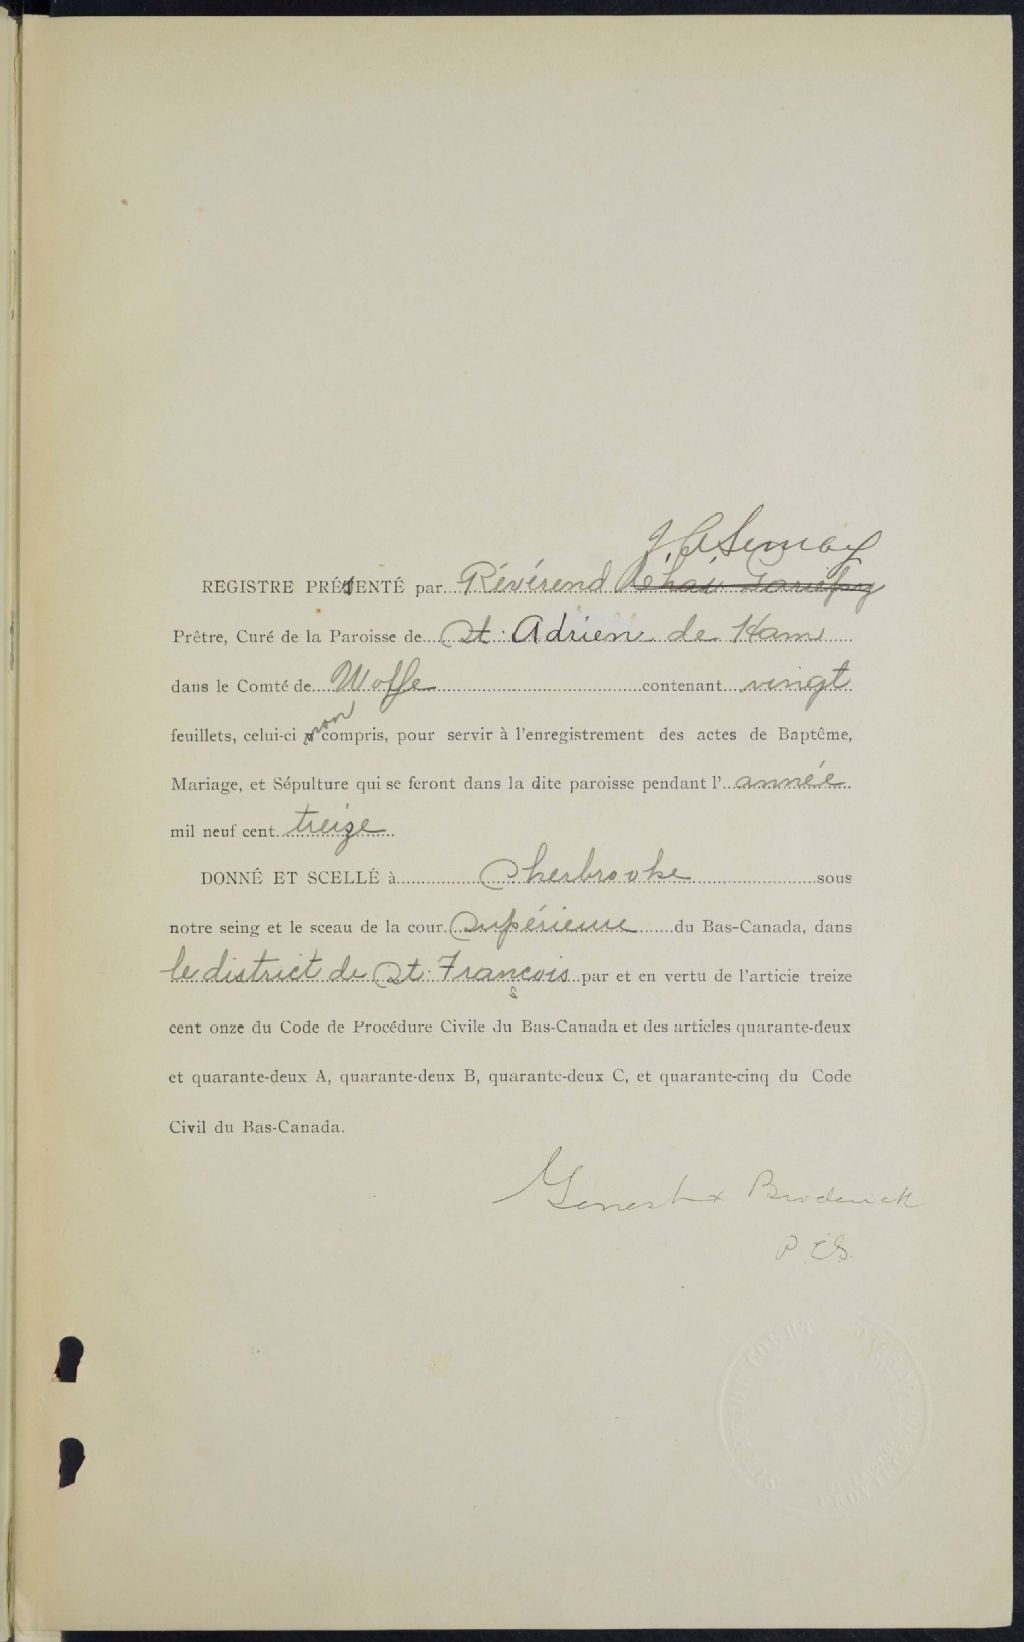 J. A. Lemay
REGISTRE PRÉSENTÉ par Révérend Chas Gariepy
Prêtre, Curé de la Paroisse de St. Adrien de Ham
dans le Comté de Wolfe contenant vingt
non
feuillets, celui-ci compris, pour servir à l'enregistrement des actes de Baptême,
Mariage, et Sépulture qui se feront dans la dite paroisse pendant l' année
mil neuf cent treize
DONNÉ ET SCELLÉ à Sherbrooke sous
notre seing et le sceau de la cour Supérieure du Bas-Canada, dans
le district de St. François par et en vertu de l'articie treize
cent onze du Code de Procédure Civile du Bas-Canada et des articles quarante-deux
et quarante-deux A, quarante-deux B, quarante-deux C, et quarante-cinq du Code
Civil du Bas-Canada.
Genest & Broderick
P C S
COURT